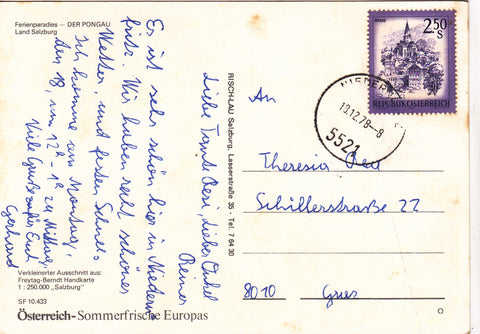 Ferienparadies – DER PONGAU
Land Salzburg
Liebe Tante Resi, lieber Onkel
Reiner
Es ist sehr schön hier in
fritz. Wir haben recht schönes
Wetter, und festen Schnee.
Ich komme am Montag,
den 18, um 12h - 1h zu Mittag,
Viele Grüße an Euch
Gerhard
Verkleinerter Ausschnitt aus:
Freytag-Berndt Handkarte
1 : 250.000 „Salzburg"
SF 10.433
Österreich-Sommerfrische Europas
RISCH-LAU Salzburg, Lasserstraße 35 · Tel. 7 64 30
2.50
S
REPUBLIK ÖSTERREICH
13.12.78-8
5521
An
Theresia
Schillerstraße 22
8010